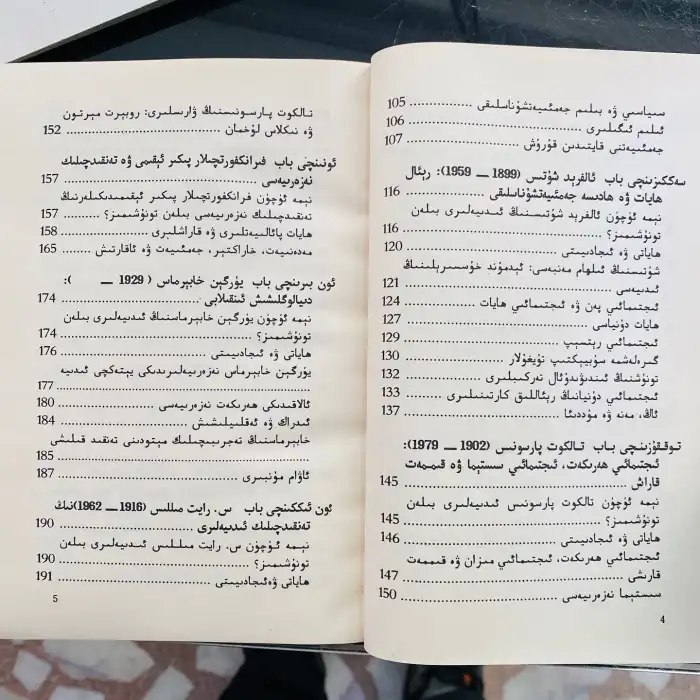 سىياسىي ۋە بىلىم جەمئىيەتشۇناسلىقى ........ 105
ئىلىم ئىگىلىرى ........ 106
جەمئىيەتنى قايتىدىن قۇرۇش ........ 107
سەككىزىنچى باب ئالفرېد شۇتس (1899 — 1959): رېئال
ھايات ۋە ھادىسە جەمئىيەتشۇناسلىقى ........ 116
نېمە ئۈچۈن ئالفرېد شۇتسنىڭ ئىدىيەلىرى بىلەن
تونۇشىمىز؟ ........ 116
ھاياتى ۋە ئىجادىيىتى ........ 120
شۇتسنىڭ ئىلھام مەنبەسى: ئېدمۇند خۇسسېرلېنىڭ
ئىدىيەسى ........ 121
ئىجتىمائىي پەن ۋە ئىجتىمائىي ھايات ........ 124
ھايات دۇنياسى ........ 127
ئىجتىمائىي رېتسېپ ........ 129
گىرەلەشمە سۇبيېكتىپ تۇيغۇلار ........ 130
تونۇشنىڭ ئىندىۋىدۇئال تەركىبلىرى ........ 132
ئىجتىمائىي دۇنيانىڭ رېئاللىق كارتىنىلىرى ........ 133
ئاڭ، مەنە ۋە مۇددىئا ........ 137
توققۇزىنچى باب تالكوت پارسونس (1902 — 1979):
ئىجتىمائىي ھەرىكەت، ئىجتىمائىي سىستېما ۋە قىممەت
قاراش ........ 145
نېمە ئۈچۈن تالكوت پارسونس ئىدىيەلىرى بىلەن
تونۇشىمىز؟ ........ 145
ھاياتى ۋە ئىجادىيىتى ........ 146
ئىجتىمائىي ھەرىكەت، ئىجتىمائىي مىزان ۋە قىممەت
قارىشى ........ 147
سىستېما نەزەرىيەسى ........ 150
4
تالكوت پارسونسنىڭ ۋارىسلىرى: روبېرت مېرتون
ۋە نىكلاس لۇخمان ........ 152
ئونىنچى باب فرانكفورتچىلار پىكىر ئېقىمى ۋە تەنقىدچىلىك
نەزەرىيەسى ........ 157
نېمە ئۈچۈن فرانكفورتچىلار پىكىر ئېقىمىدىكىلەرنىڭ
تەنقىدچىلىك نەزەرىيەسى بىلەن تونۇشىمىز؟ ........ 157
ھايات پائالىيەتلىرى ۋە قاراشلىرى ........ 158
مەدەنىيەت، خاراكتېر، جەمئىيەت ۋە ئاقارتىش ........ 165
ئون بىرىنچى باب يۇرگېن خابېرماس (1929 — ):
دىيالوگلىشىش ئىنقىلابى ........ 174
نېمە ئۈچۈن يۇرگېن خابېرماسنىڭ ئىدىيەلىرى بىلەن
تونۇشىمىز؟ ........ 174
ھاياتى ۋە ئىجادىيىتى ........ 176
يۇرگېن خابېرماس نەزەرىيەلىرىدىكى يېتەكچى ئىدىيە
........ 177
ئالاقىدىكى ھەرىكەت نەزەرىيەسى ........ 180
ئىدراك ۋە ئەقلىيلىشىش ........ 184
خابېرماسنىڭ تەجرىبىچىلىك مېتودىنى تەنقىد قىلىشى
........ 185
ئاۋام مۇنبىرى ........ 187
ئون ئىككىنچى باب س. رايت مىللس (1916 — 1962)نىڭ
تەنقىدچىلىك ئىدىيەلىرى ........ 190
نېمە ئۈچۈن س. رايت مىللس ئىدىيەلىرى بىلەن
تونۇشىمىز؟ ........ 190
ھاياتى ۋەئىجادىيىتى ........ 191
5